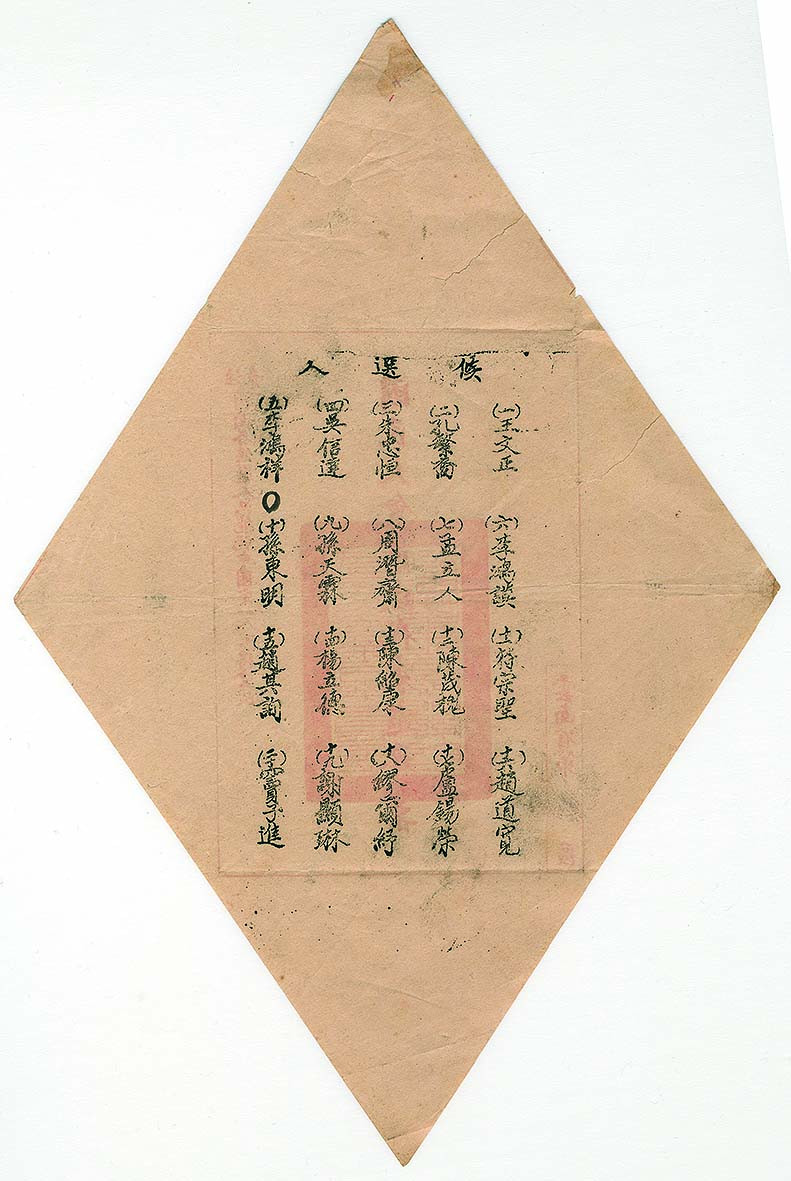 候選人
(一)王文正
(二)孔繁裔
(三)朱忠恒
(四)吳信達
(五)李鴻祥
(六)李鴻謨
(七)孟立人
(八)周濳齋
(九)孫天霖
(十)孫東明
(十一)符宗聖
(十二)陳茂梲
(十三)陳能康
(十四)楊立德
(十五)趙其詢
(十六)趙道寬
(十七)盧錫榮
(十八)繆爾紓
(十九)謝顯琳
(二十)竇子進